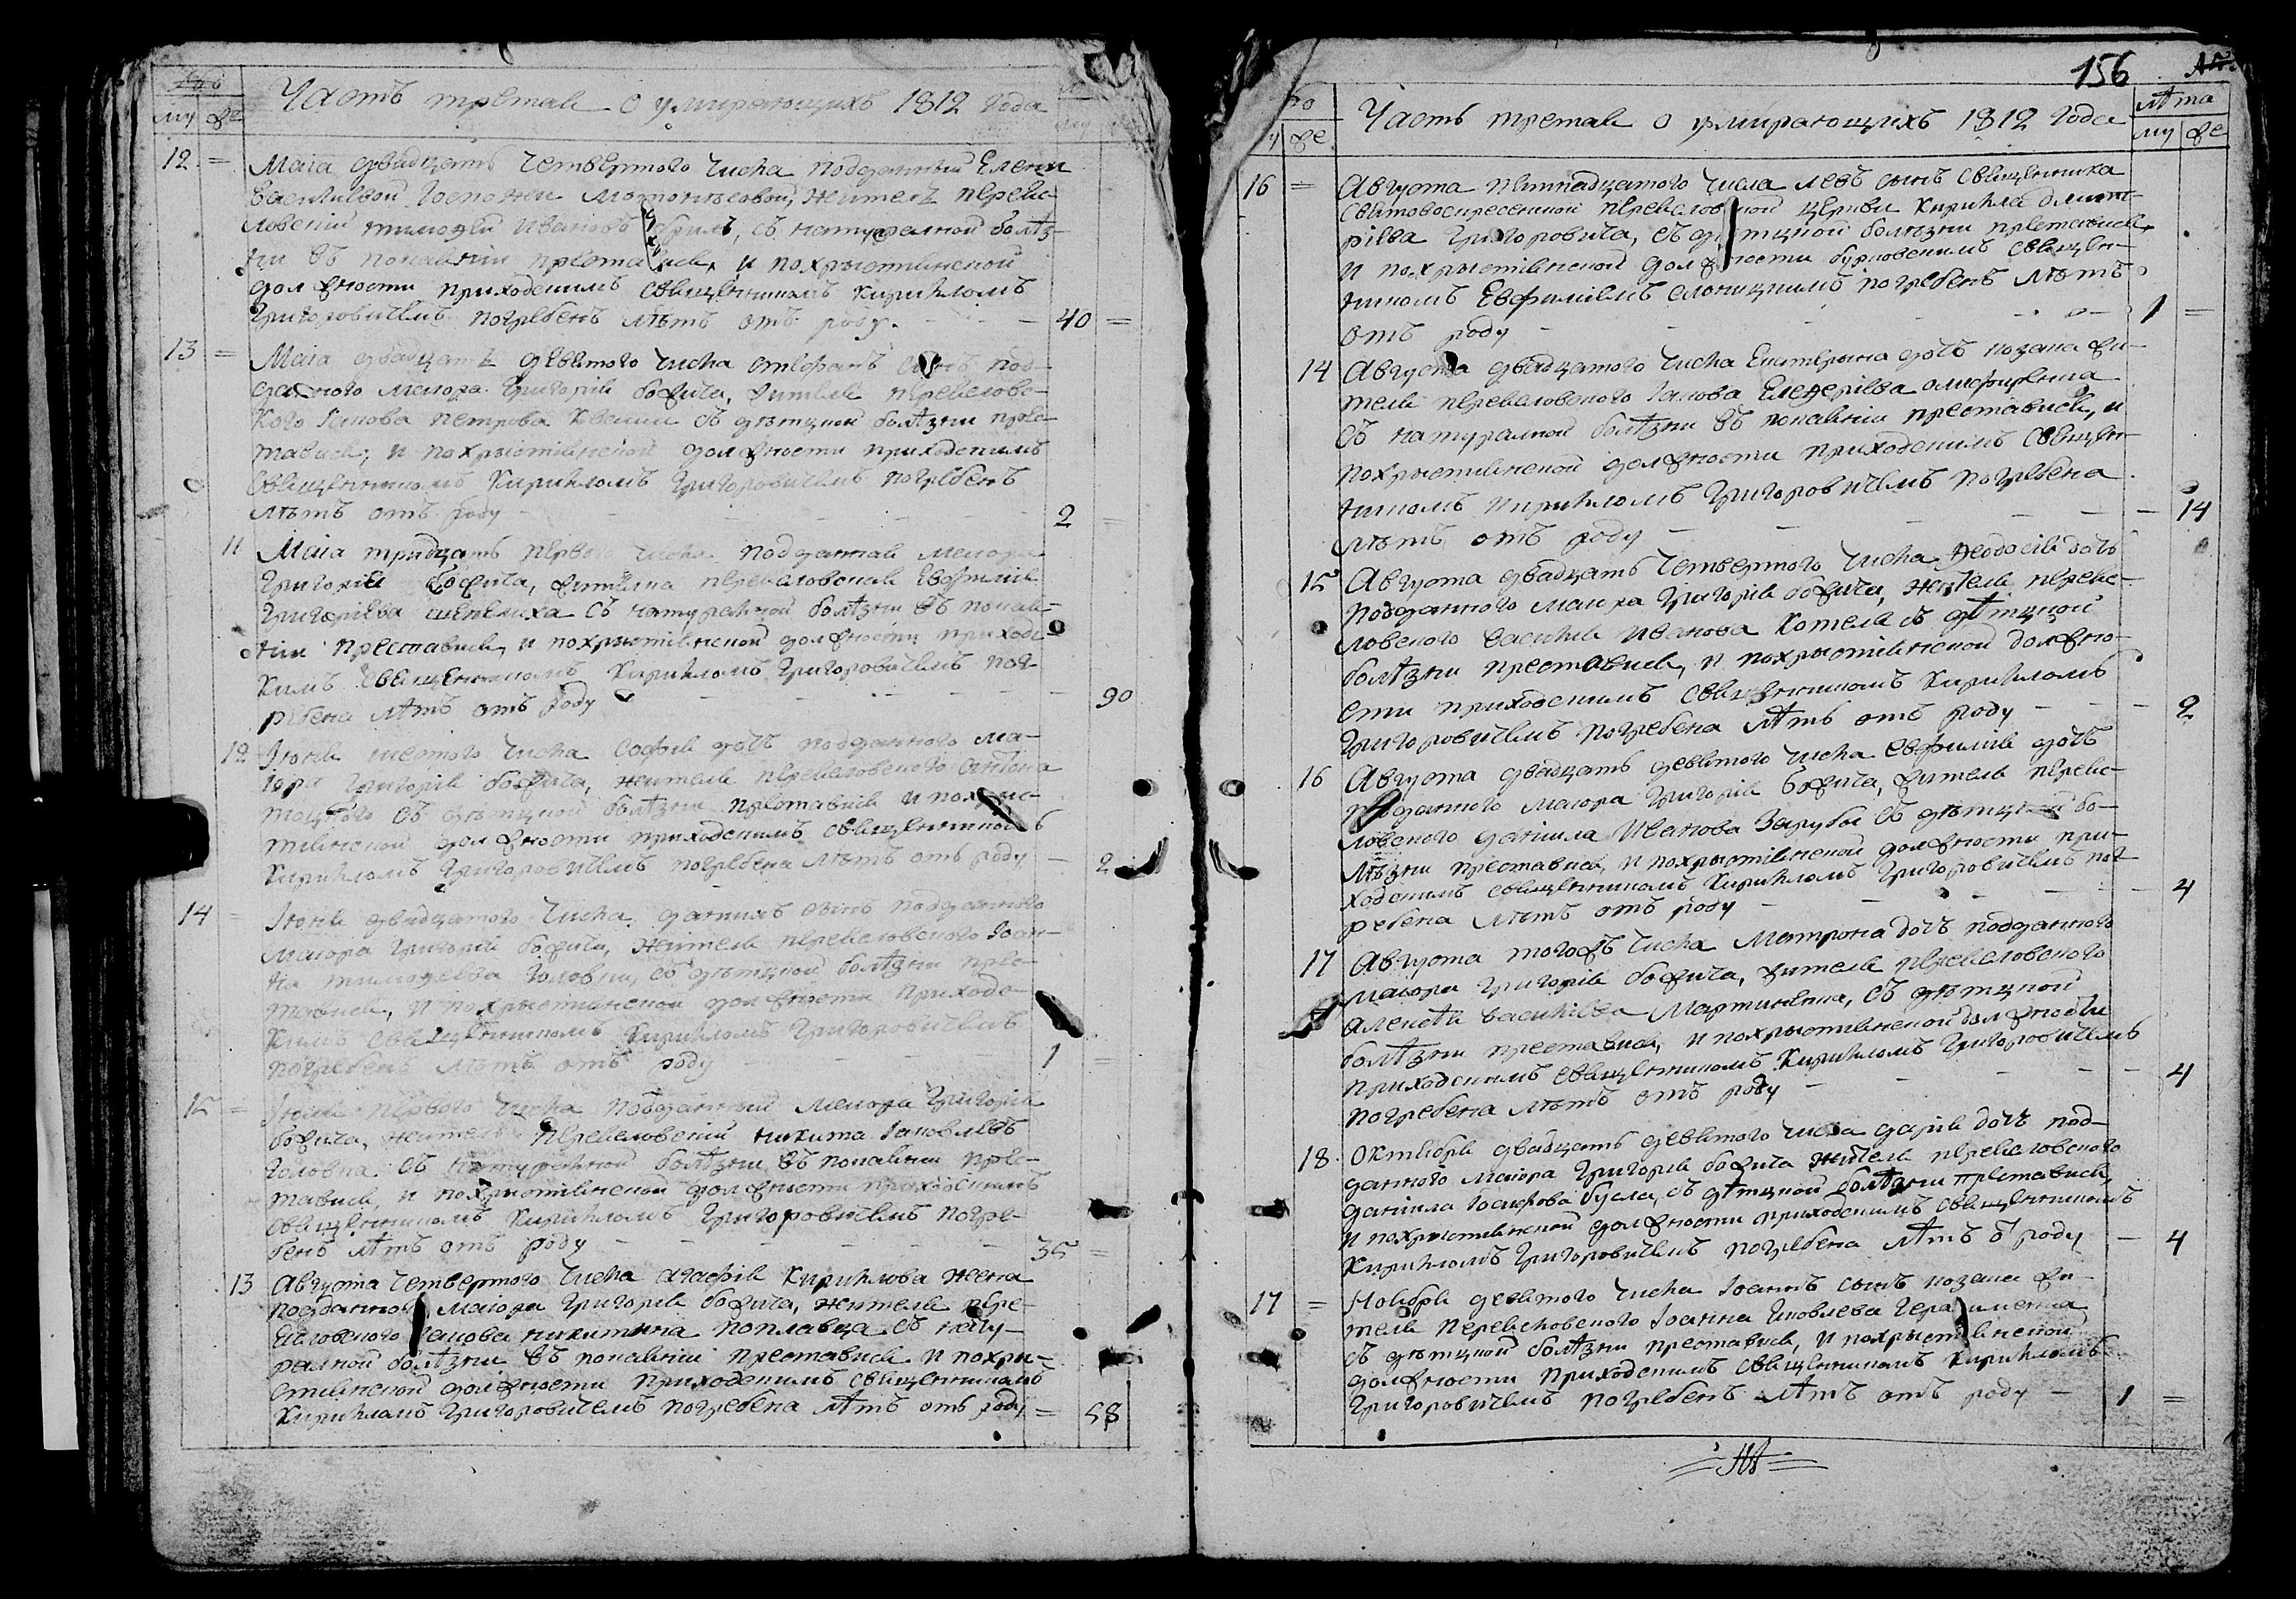 Часть третая о умирающихъ 1812 Года
му фе
12 = Маіа двадцать четвертого числа подданный Елени
Василиевой Госпожи житель перевс-
ловскій тимофей Ивановъ съ натуралной болѣз-
ни въ покаяніи преставися, и похрыстиянской
должности приходскимъ священникомъ Кирилломъ
Григоровичемъ погребенъ лѣтъ отъ роду. - - - 40 =
13 = Маіа двадцать девятого числа стефанъ сынъ под-
данного маіора Григорія божича, жителя переясловс-
кого Іакова петрова съ дѣтцкой болѣзни прес-
тавися, и похрыстиянской должности приходскимъ
священникомъ Кирилломъ Григоровичемъ погребенъ
лѣтъ отъ роду - - - 2 =
11 Маіа тридцать первого числа подданная маіора
Григорія божича, жителка переясловская Евфимія
Григориева съ натуралной болѣзни въ покая-
ніи преставися, и похрыстиянской должности приходс-
кимъ священникомъ Кирилломъ Григоровичемъ пог-
ребена лѣтъ отъ роду - - - 90
12 Іюня шестого числа софія дочь подданного ма-
іора Григорія божича, жителя переясловского
съ дѣтцкой болѣзни преставися и похрис-
тиянской должности приходскимъ священникомъ
Кирилломъ Григоровичемъ погребена лѣтъ отъ роду - 2
14 = Іюня двадцатого числа даниилъ сынъ подданного
маіора Григорія божича, жителя переясловского Іоан-
на тимофеева Головки, съ дѣтцкой болѣзни прес-
тавися, и похрыстиянской должности приходс-
кимъ священникомъ Кирилломъ Григоровичемъ
погребенъ лѣтъ отъ роду - - 1 =
15 = первого числа подданный маіора Григорія
божича, житель переясловскій никита Іаковлевъ
головка съ натуралной болѣзни въ покаяніи прес-
тавися, и похрыстиянской должности приходскимъ
священникомъ Кирилломъ Григоровичемъ погре-
бенъ лѣтъ отъ роду - - - 35 =
13 Августа четвертого числа агафія Кириллова жена
подданного маіора Григорія божича, жителя пере-
ясловского Іакова никитина поплавца съ нату-
ралной болѣзни въ покаяніи преставися и похри-
стиянской должности приходскимъ священникомъ
Кирилломъ Григоровичемъ погребена лѣтъ отъ роду = 58
156
Часть третая о умирающихъ 1812 Года
лѣта
му фе
16 = Августа пятнадцатого числа левъ сынъ священника
святовоскресенской переясловской церкви Кирилла дмит-
риева Григоровича, съ дѣтцкой болѣзни преставися,
и похрыстиянской должности священ-
никомъ Евфиміемъ погребенъ лѣтъ
отъ роду - - - 1 =
14 Августа двадцатого числа Екатерина дочь козака жи-
теля переясловского Іакова
съ натуралной болѣзни въ покаяніи преставися, и
похрыстиянской должности приходскимъ священ-
никомъ Кирилломъ Григоровичемъ погребена
лѣтъ отъ роду - - - 14
15 Августа двадцать четвертого числа феодосія дочь
подданного маіора Григорія божича, жителя переяс-
ловского василія Иванова Котеля съ дѣтцкой
болѣзни преставися, и похрыстиянской должно-
сти приходскимъ священникомъ Кирилломъ
Григоровичемъ погребена лѣтъ отъ роду - - - 2
16 Августа двадцать девятого числа евфимія дочь
подданного маіора Григорія божича, жителя переяс-
ловского даніила Иванова Зарубы съ дѣтцкой бо-
лѣзни преставися, и похрыстиянской должности при-
ходскимъ священникомъ Кирилломъ Григоровичемъ пог-
ребена лѣтъ отъ роду - - - 4
17 Августа тогожъ числа Матрона дочь подданного
маіора Григорія божича, жителя переясловского
алексѣя василіева Мартиненка, съ дѣтцкой
болѣзни преставися, и похрыстиянской должности
приходскимъ священникомъ Кирилломъ Григоровичемъ
погребена лѣтъ отъ роду - - - 4
18 Октября двадцать девятого числа дарія дочь под-
данного маіора Григорія божича жителя переясловского
даніила Іосифова бусла, съ дѣтцкой болѣзни преставися,
и похрыстиянской должности приходскимъ священникомъ
Кирилломъ Григоровичемъ погребена лѣтъ о роду - 4
17 = Ноября девятого числа Іоаннъ сынъ козака жи-
теля переясловского Іоанна Іаковлева Герасименка
съ дѣтцкой болѣзни преставися, и похрыстиянской
должности приходскимъ священникомъ Кирилломъ
Григоровичемъ погребенъ лѣтъ отъ роду - 1 =